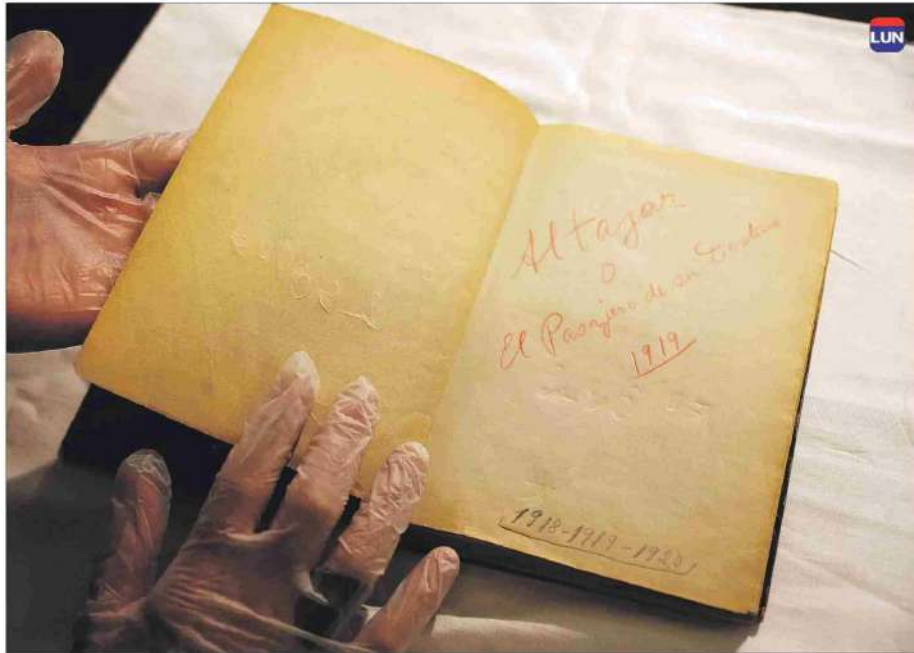 LUN
Altazor
o
El Pasajero de su Destino
1919
1918-1919-1920